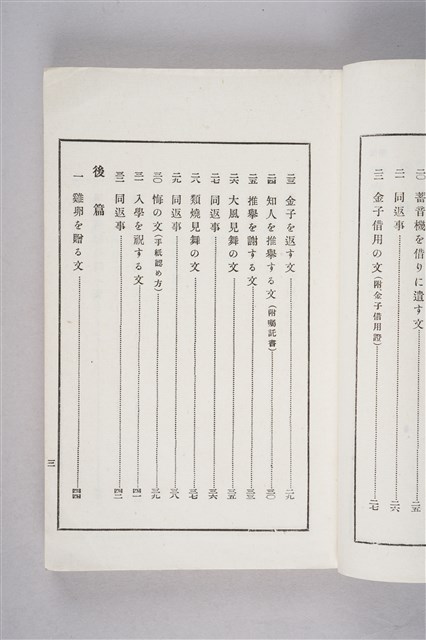 二〇 蓄音機を借りに遣す文 二五
二一 同返事 二六
二二 金子借用の文(附金子借用證) 二七
二三 金子を返す文 二九
二四 知人を推擧する文(附囑託書) 三〇
二五 推擧を謝する文 三三
二六 大風見舞の文 三五
二七 同返事 三六
二八 類燒見舞の文 三七
二九 同返事 三八
三〇 悔の文(手紙認め方) 三九
三一 入學を祝する文 四一
三二 同返事 四二
後篇
一 雞卵を贈る文 四四
三